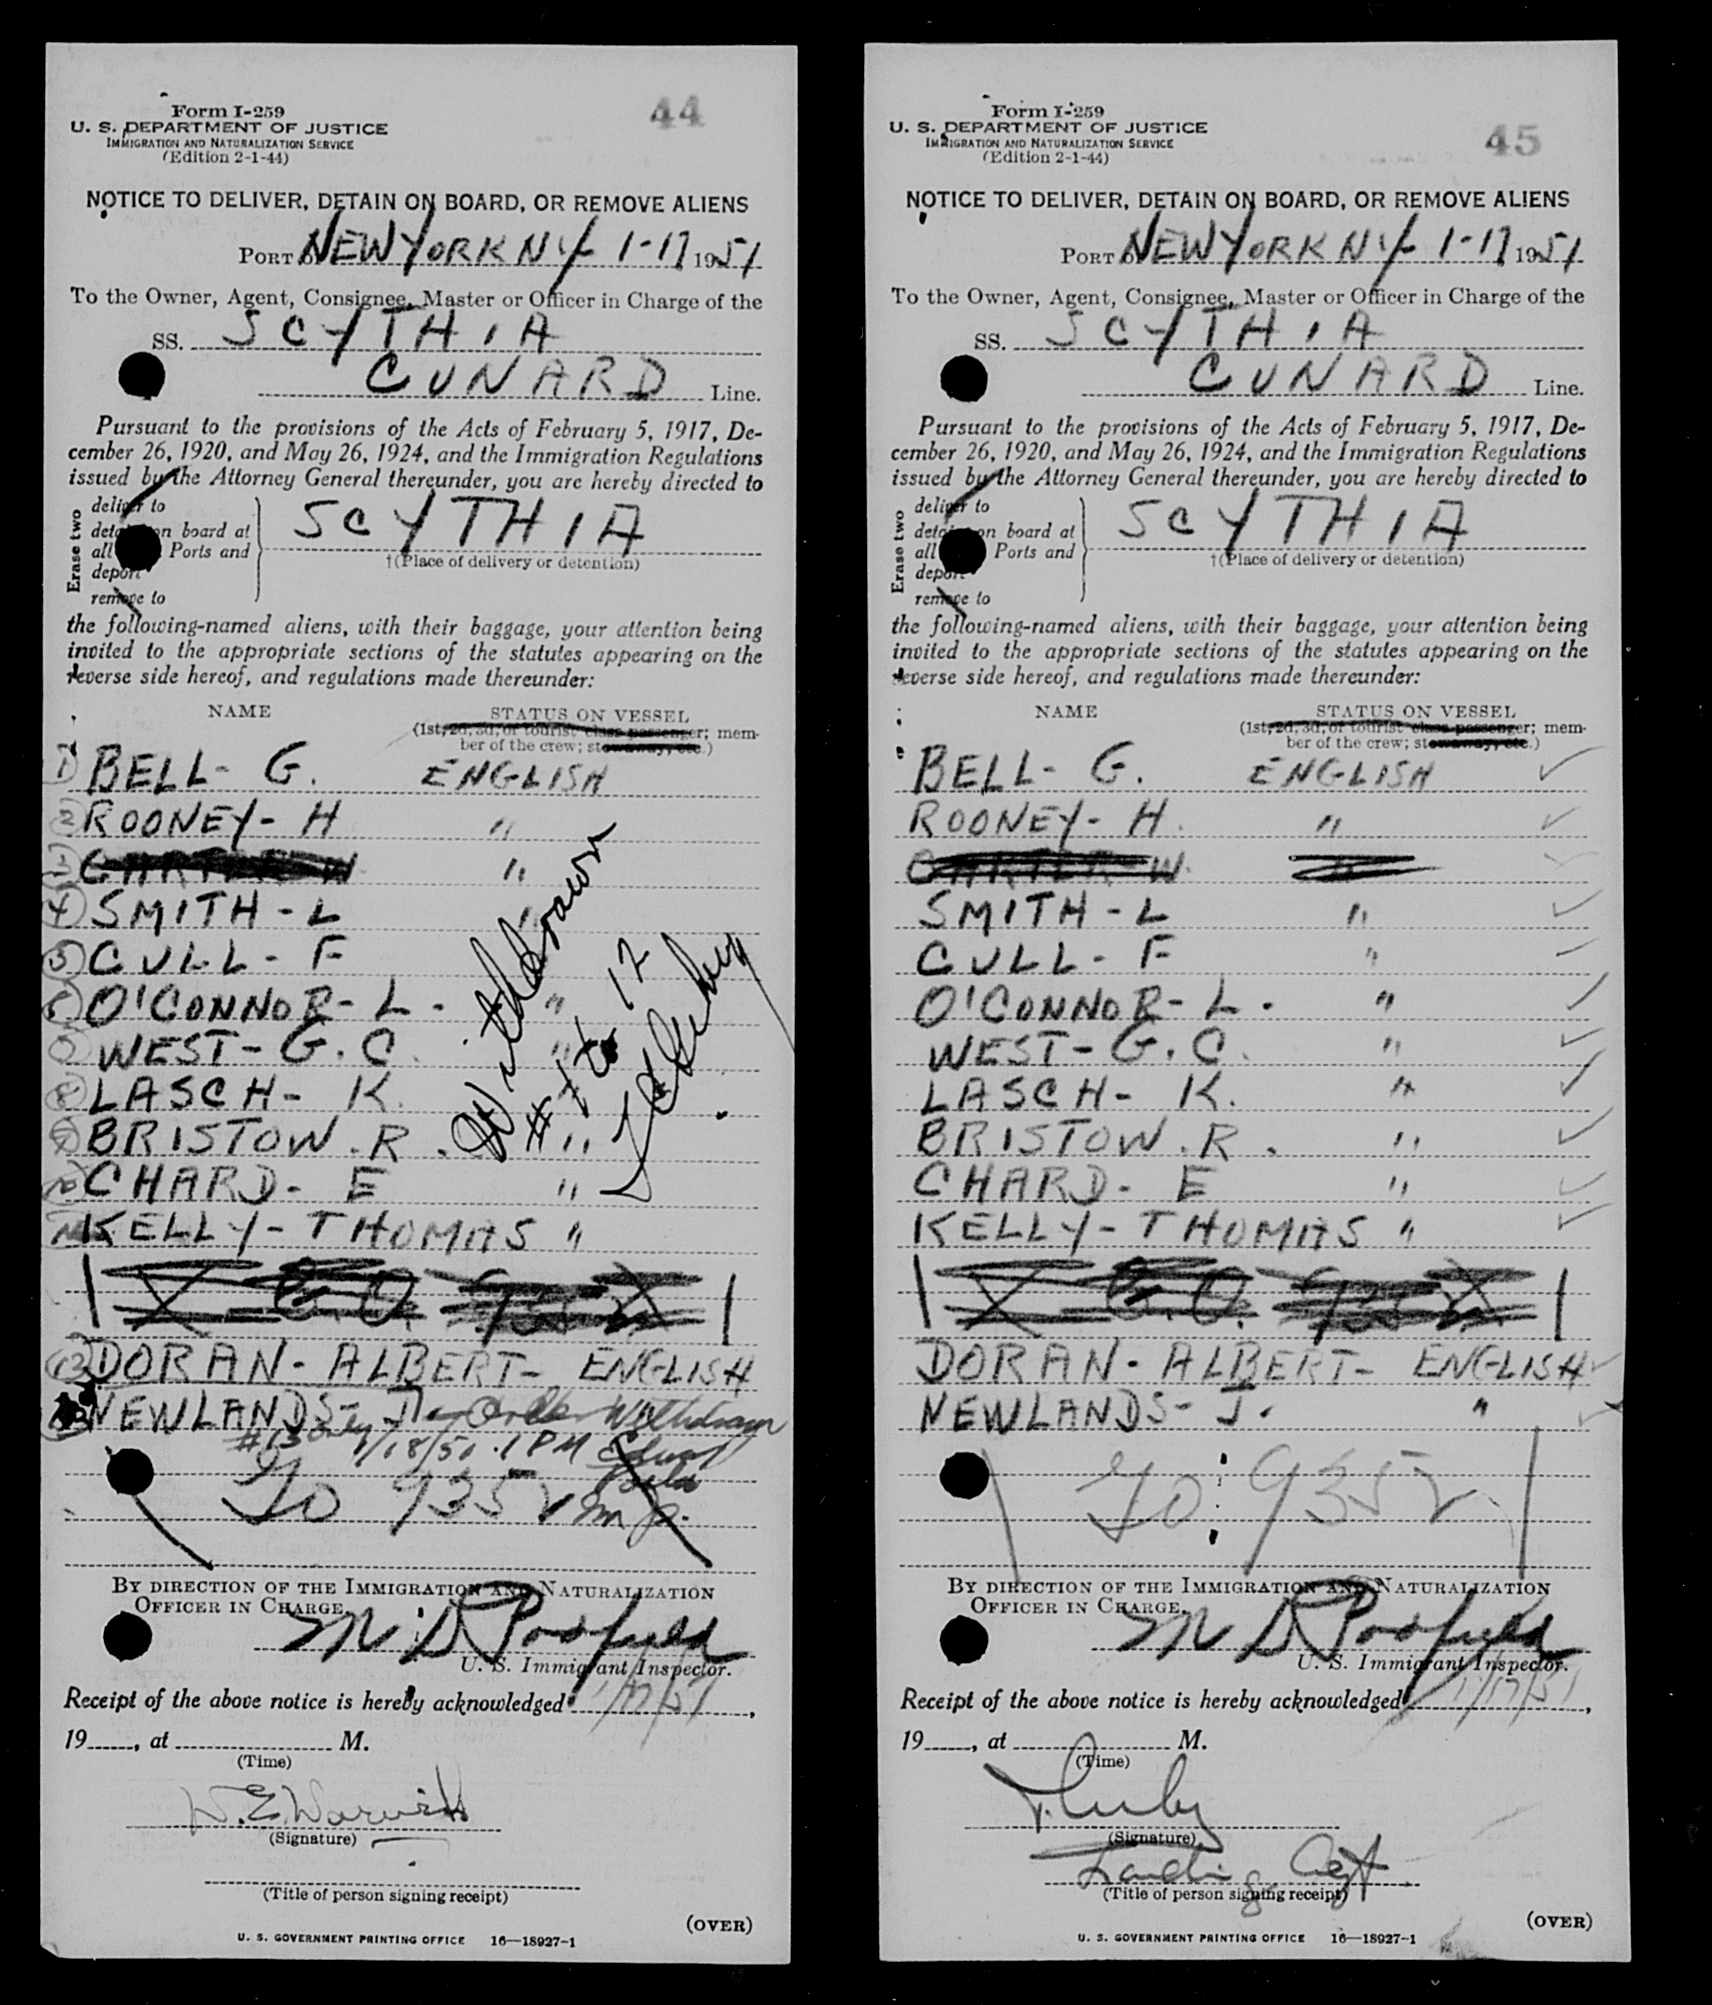 Form I-259
44
U. S. DEPARTMENT OF JUSTICE
IMMIGRATION AND NATURALIZATION SERVICE
(Edition 2-1-44)
NOTICE TO DELIVER, DETAIN ON BOARD, OR REMOVE ALIENS
PORT NEW YORK NY 1-17 1951
To the Owner, Agent, Consignee, Master or Officer in Charge of the
SS. SCYTHIA
CUNARD Line.
Pursuant to the provisions of the Acts of February 5, 1917, De-
cember 26, 1920, and May 26, 1924, and the Immigration Regulations
issued by the Attorney General thereunder, you are hereby directed to
Erase two
deliver to
detain on board at
all Ports and
deport
remove to
SCYTHIA
†(Place of delivery or detention)
the following-named aliens, with their baggage, your attention being
invited to the appropriate sections of the statutes appearing on the
reverse side hereof, and regulations made thereunder:
NAME STATUS ON VESSEL
(1st, 2d, 3d, or tourist class passenger; mem-
ber of the crew; stowaway, etc.)
1 BELL - G. ENGLISH
2 ROONEY - H "
3 CARTER W "
4 SMITH - L "
5 CULL - F
6 O'CONNOR - L. "
7 WEST - G. C. "
8 LASCH - K.
9 BRISTOW. R. "
10 CHARD - E "
KELLY - THOMAS "
Withdrawn
#1 to 12
12 DORAN - ALBERT - ENGLISH
13 NEWLANDS - J. Order Withdrawn
#13 only 1/18/51 1 PM
To 9352
BY DIRECTION OF THE IMMIGRATION AND NATURALIZATION
OFFICER IN CHARGE.
U. S. Immigrant Inspector.
Receipt of the above notice is hereby acknowledged 1/17/51,
19____, at ____ M.
(Time)
W. E. Warwick
(Signature)
(Title of person signing receipt)
(OVER)
U. S. GOVERNMENT PRINTING OFFICE 16—18927-1
Form I-259
45
U. S. DEPARTMENT OF JUSTICE
IMMIGRATION AND NATURALIZATION SERVICE
(Edition 2-1-44)
NOTICE TO DELIVER, DETAIN ON BOARD, OR REMOVE ALIENS
PORT NEW YORK NY 1-17 1951
To the Owner, Agent, Consignee, Master or Officer in Charge of the
SS. SCYTHIA
CUNARD Line.
Pursuant to the provisions of the Acts of February 5, 1917, De-
cember 26, 1920, and May 26, 1924, and the Immigration Regulations
issued by the Attorney General thereunder, you are hereby directed to
Erase two
deliver to
detain on board at
all Ports and
deport
remove to
SCYTHIA
†(Place of delivery or detention)
the following-named aliens, with their baggage, your attention being
invited to the appropriate sections of the statutes appearing on the
reverse side hereof, and regulations made thereunder:
NAME STATUS ON VESSEL
(1st, 2d, 3d, or tourist class passenger; mem-
ber of the crew; stowaway, etc.)
BELL - G. ENGLISH
ROONEY - H. "
CARTER W.
SMITH - L "
CULL - F "
O'CONNOR - L. "
WEST - G. C. "
LASCH - K. "
BRISTOW. R. "
CHARD - E "
KELLY - THOMAS "
DORAN - ALBERT - ENGLISH
NEWLANDS - J. "
To 9352
BY DIRECTION OF THE IMMIGRATION AND NATURALIZATION
OFFICER IN CHARGE.
U. S. Immigrant Inspector.
Receipt of the above notice is hereby acknowledged 1/17/51,
19____, at ____ M.
(Time)
(Signature)
Landing Agt
(Title of person signing receipt)
(OVER)
U. S. GOVERNMENT PRINTING OFFICE 16—18927-1